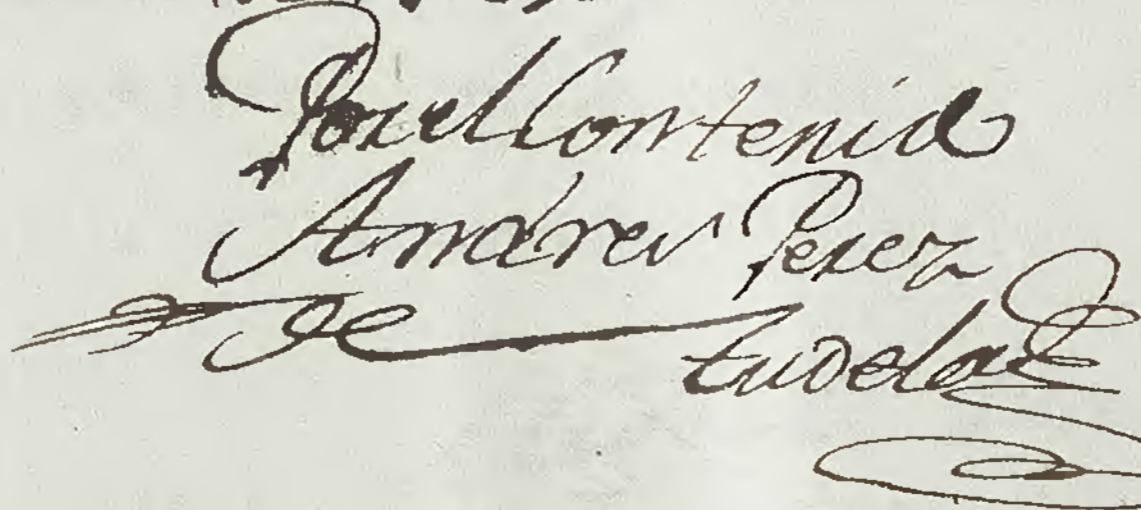 Por el Contenido
Andres Perez
de
tudela